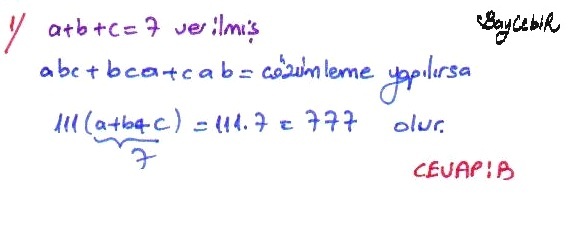 1) a+b+c=7 verilmiş
BaycebiR
abc+bca+cab= çözümleme yapılırsa
111(a+b+c) = 111.7 = 777 olur.
7
CEVAP:B